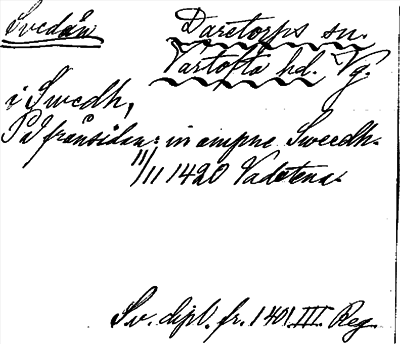 Svedån Daretorps sn.
Vartofta hd. Vg.
i Swedh,
På frånsidan: in ampne Sweedh.
11/11 1420 Vadstena.
Sv. dipl. fr. 1401 III. Reg.